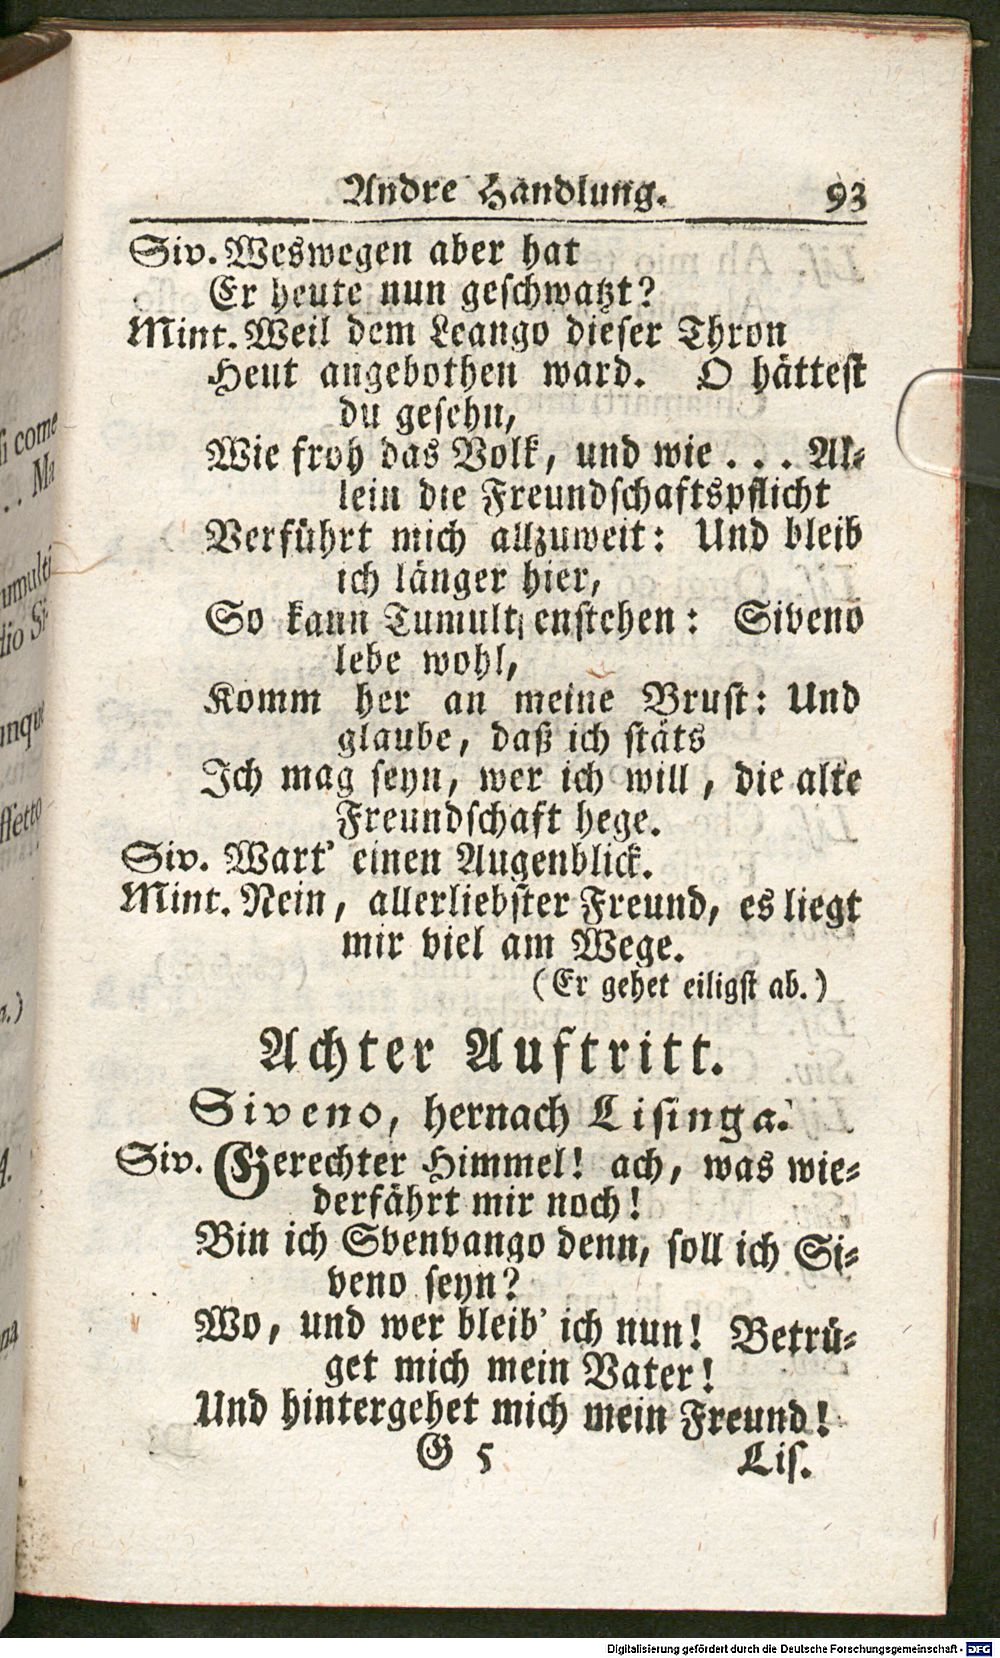 Andre Handlung. 93
Siv. Weswegen aber hat
Er heute nun geschwatzt?
Mint. Weil dem Leango dieser Thron
Heut angebothen ward. O hättest
du gesehn,
Wie froh das Volk, und wie . . . Al-
lein die Freundschaftspflicht
Verführt mich allzuweit: Und bleib
ich länger hier,
So kann Tumult enstehen: Siveno
lebe wohl,
Komm her an meine Brust: Und
glaube, daß ich stäts
Ich mag seyn, wer ich will, die alte
Freundschaft hege.
Siv. Wart' einen Augenblick.
Mint. Nein, allerliebster Freund, es liegt
mir viel am Wege.
(Er gehet eiligst ab.)
Achter Auftritt.
Siveno, hernach Lisinga.
Siv. Gerechter Himmel! ach, was wie-
derfährt mir noch!
Bin ich Svenvango denn, soll ich Si-
veno seyn?
Wo, und wer bleib' ich nun! Betrü-
get mich mein Vater!
Und hintergehet mich mein Freund!
G 5 Lis.
si come
. . Ma
umulti
dio Si-
ffetto
a.)
Digitalisierung gefördert durch die Deutsche Forschungsgemeinschaft - DFG